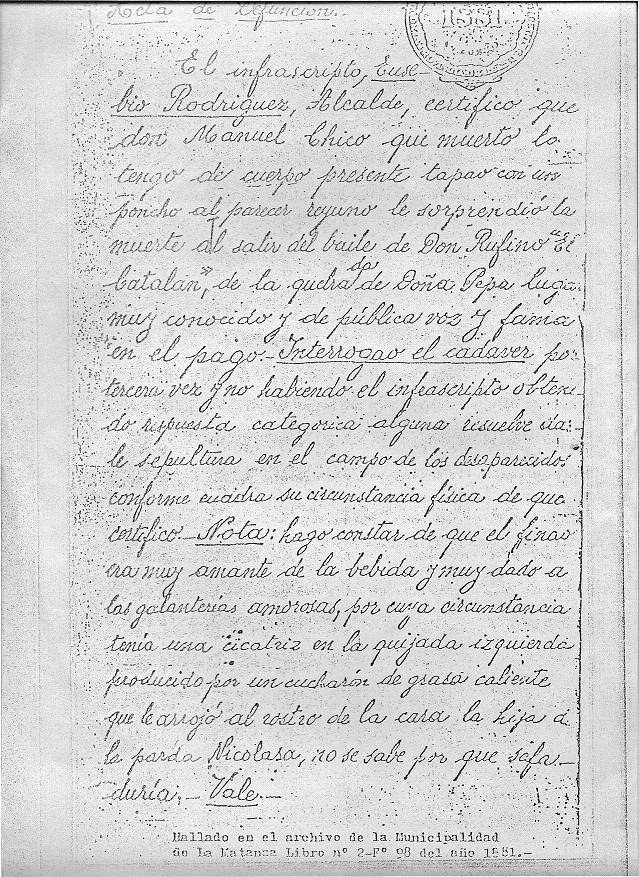 Acta de Defunción.
1881
El infrascripto, Euse-
bio Rodriguez, Alcalde, certifico que
don Manuel Chico que muerto lo
tengo de cuerpo presente tapao con un
poncho al parecer reyuno le sorprendió la
muerte al salir del baile de Don Rufino "El
Catalán", de la quebra
da
de Doña Pepa Lugar
muy conocido y de pública voz y fama
en el pago.- Interrogao el cadaver por
tercera vez y no habiendo el infrascripto obteni-
do respuesta categorica alguna resuelve dar-
le sepultura en el campo de los desaparecidos
conforme cuadra su circunstancia física de que
certifico.- Nota: hago constar de que el finao
era muy amante de la bebida y muy dado a
las galanterías amorosas, por cuya circunstancia
tenía una cicatriz en la quijada izquierda
producido por un cucharón de grasa caliente
que le arrojó al rostro de la cara la hija de
la parda Nicolasa, no se sabe por que safa-
duría.- Vale.-
Hallado en el archivo de la Municipalidad
de La Matanza Libro nº 2-Fº 98 del año 1881.-